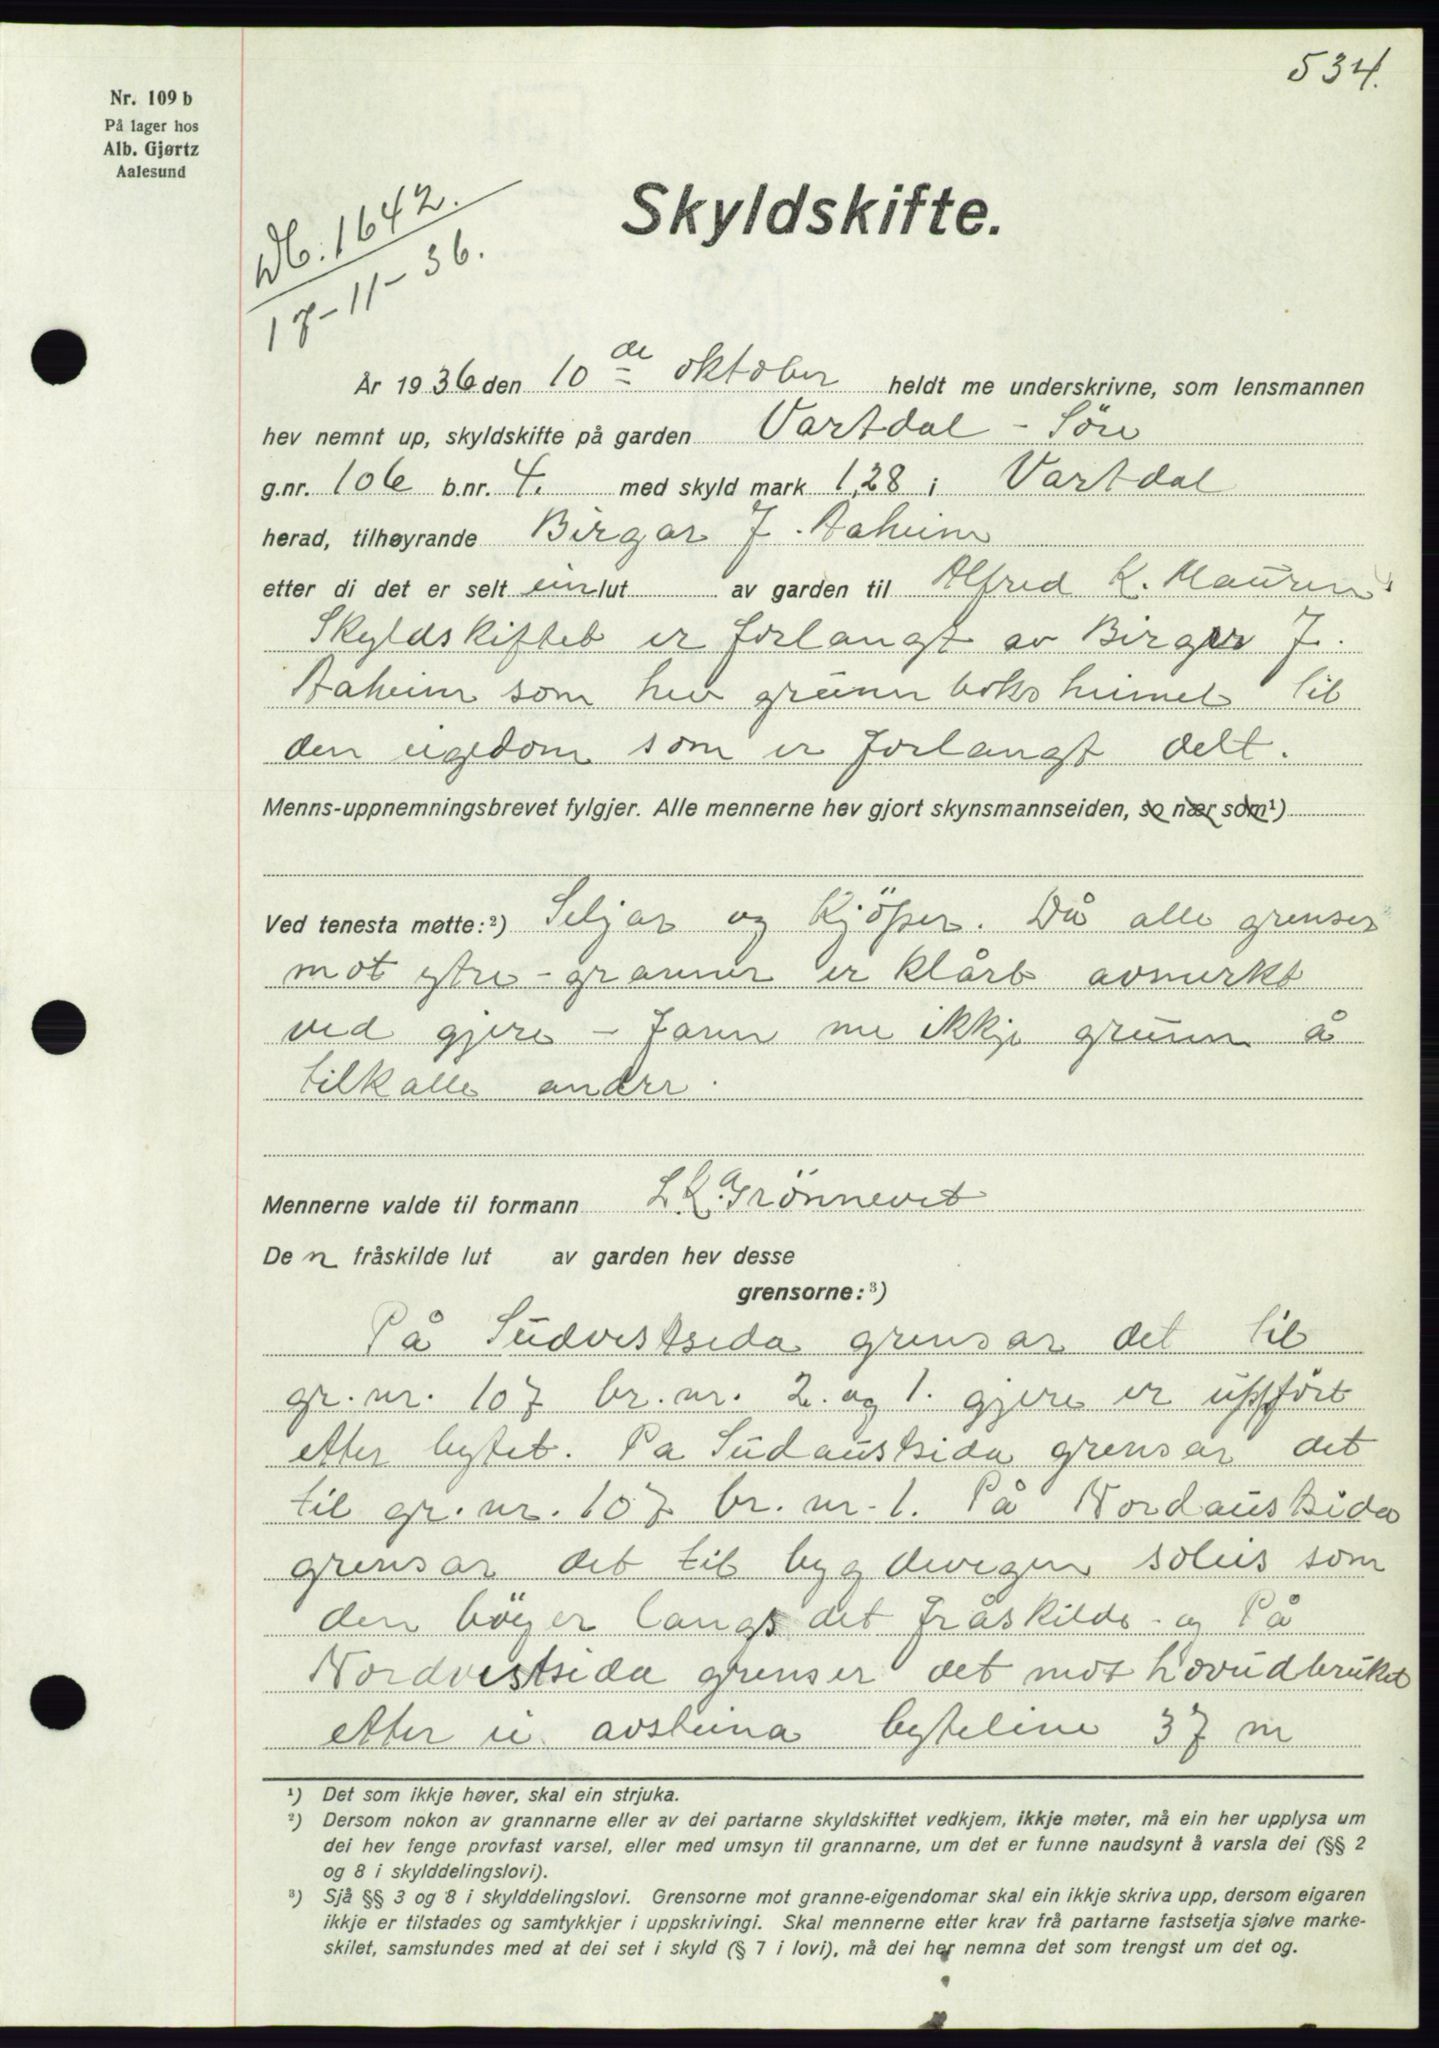 534.
Nr. 109 b
På lager hos
Alb. Gjørtz
Aalesund
Db. 1642.
17-11-36.
Skyldskifte.
År 1936 den 10de oktober heldt me underskrivne, som lensmannen
hev nemnt up, skyldskifte på garden Vartdal - Söre
g.nr. 106 b.nr. 4. med skyld mark 1,28 i Vartdal
herad, tilhøyrande Birgar J. Aaheim
etter di det er selt ein lut av garden til Alfred K. Mauren.
Skyldskiftet er forlangt av Birger J.
Aaheim som hev grunnbokshimel til
den eigedom som er forlangt delt.
Menns-uppnemningsbrevet fylgjer. Alle mennerne hev gjort skynsmannseiden, so nær som¹)
Ved tenesta møtte:²) Seljar og Kjöper. Då alle grenser
mot ytre - granner er klårt avmerkt
ved gjere - fann me ikkje grunn å
tilkalle andre.
Mennerne valde til formann L. K. Grönnevet
De n fråskilde lut av garden hev desse
grensorne:³)
På Südvestsida grensar det til
gr. nr. 107 br. nr. 2. og 1. gjere er uppfört
etter bytet. Pa Südaustsida grensar det
til gr. nr. 107 br. nr. 1. På Nordaustsida
grensar det til bygdevegen soleis som
den böyer langs det fråskilde - og På
Nordvestsida grenser det mot hovudbruket
etter ei avsteina byteline 37 m
¹) Det som ikkje høver, skal ein strjuka.
²) Dersom nokon av grannarne eller av dei partarne skyldskiftet vedkjem, ikkje møter, må ein her upplysa um
dei hev fenge provfast varsel, eller med umsyn til grannarne, um det er funne naudsynt å varsla dei (§§ 2
og 8 i skylddelingslovi).
³) Sjå §§ 3 og 8 i skylddelingslovi. Grensorne mot granne-eigendomar skal ein ikkje skriva upp, dersom eigaren
ikkje er tilstades og samtykkjer i uppskrivingi. Skal mennerne etter krav frå partarne fastsetja sjølve marke-
skilet, samstundes med at dei set i skyld (§ 7 i lovi), må dei her nemna det som trengst um det og.